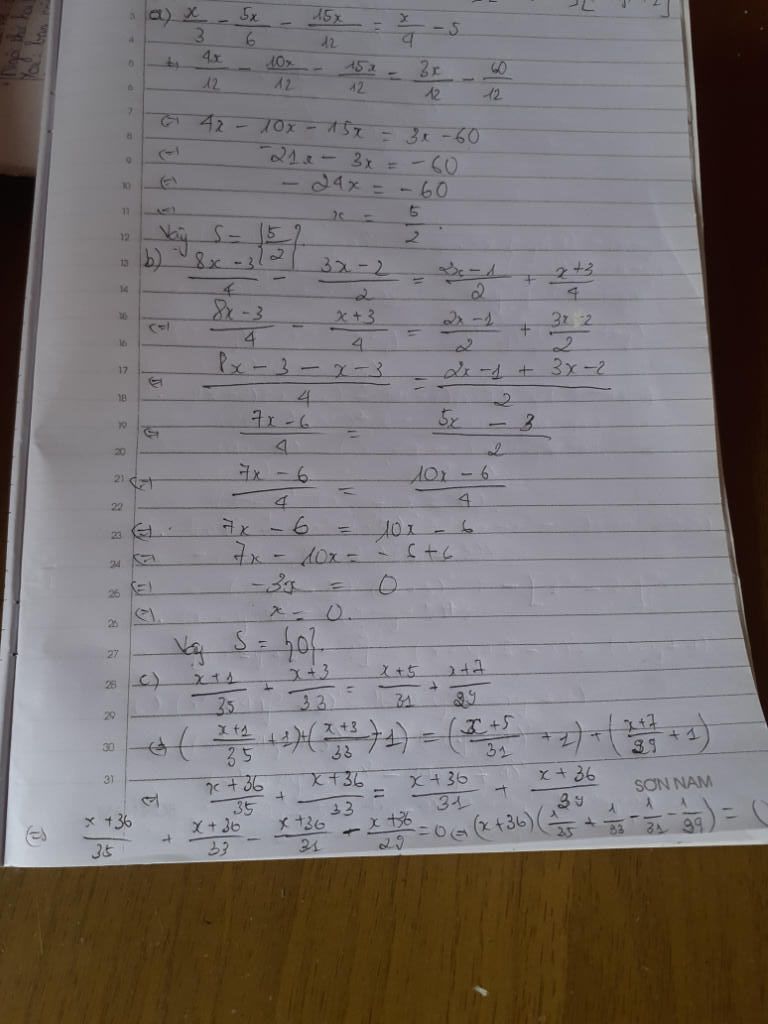 a) x/3 - 5x/6 - 15x/12 = x/4 - 5
4x/12 - 10x/12 - 15x/12 = 3x/12 - 60/12
(=) 4x - 10x - 15x = 3x - 60
(=) -21x - 3x = -60
(=) - 24x = -60
(=) x = 5/2.
Vậy S = {5/2}.
b) 8x - 3/4 - 3x - 2/2 = 2x - 1/2 + x + 3/4
(=) 8x - 3/4 - x + 3/4 = 2x - 1/2 + 3x - 2/2
(=) 8x - 3 - x - 3/4 = 2x - 1 + 3x - 2/2
(=) 7x - 6/4 = 5x - 3/2
(=) 7x - 6/4 = 10x - 6/4
(=) 7x - 6 = 10x - 6
(=) 7x - 10x = - 6 + 6
(=) -3x = 0
(=) x = 0.
Vậy S = {0}.
c) x + 1/35 + x + 3/33 = x + 5/31 + x + 7/29
(=) (x + 1/35 + 1) + (x + 3/33 + 1) = (x + 5/31 + 1) + (x + 7/29 + 1)
(=) x + 36/35 + x + 36/33 = x + 36/31 + x + 36/29
SƠN NAM
(=) x + 36/35 + x + 36/33 - x + 36/31 - x + 36/29 = 0 (=) (x + 36)(1/35 + 1/33 - 1/31 - 1/29) =